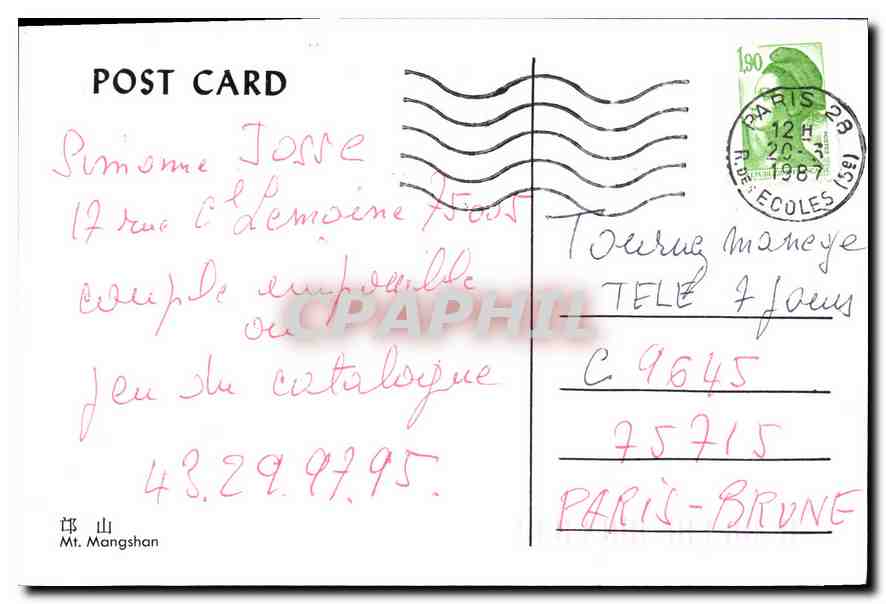 POST CARD
Simone Josse
17 rue Cl Lemoine 75005
couple impossible
ou
jeu du catalogue
43.29.97.95.
邙 山
Mt. Mangshan
1,90
PARIS 28
12 H
20 - 3
1987
R. DES ECOLES (5e)
Tournez manege
TELE 7 Jours
C 9645
75715
PARIS-BRUNE
CPAPHIL